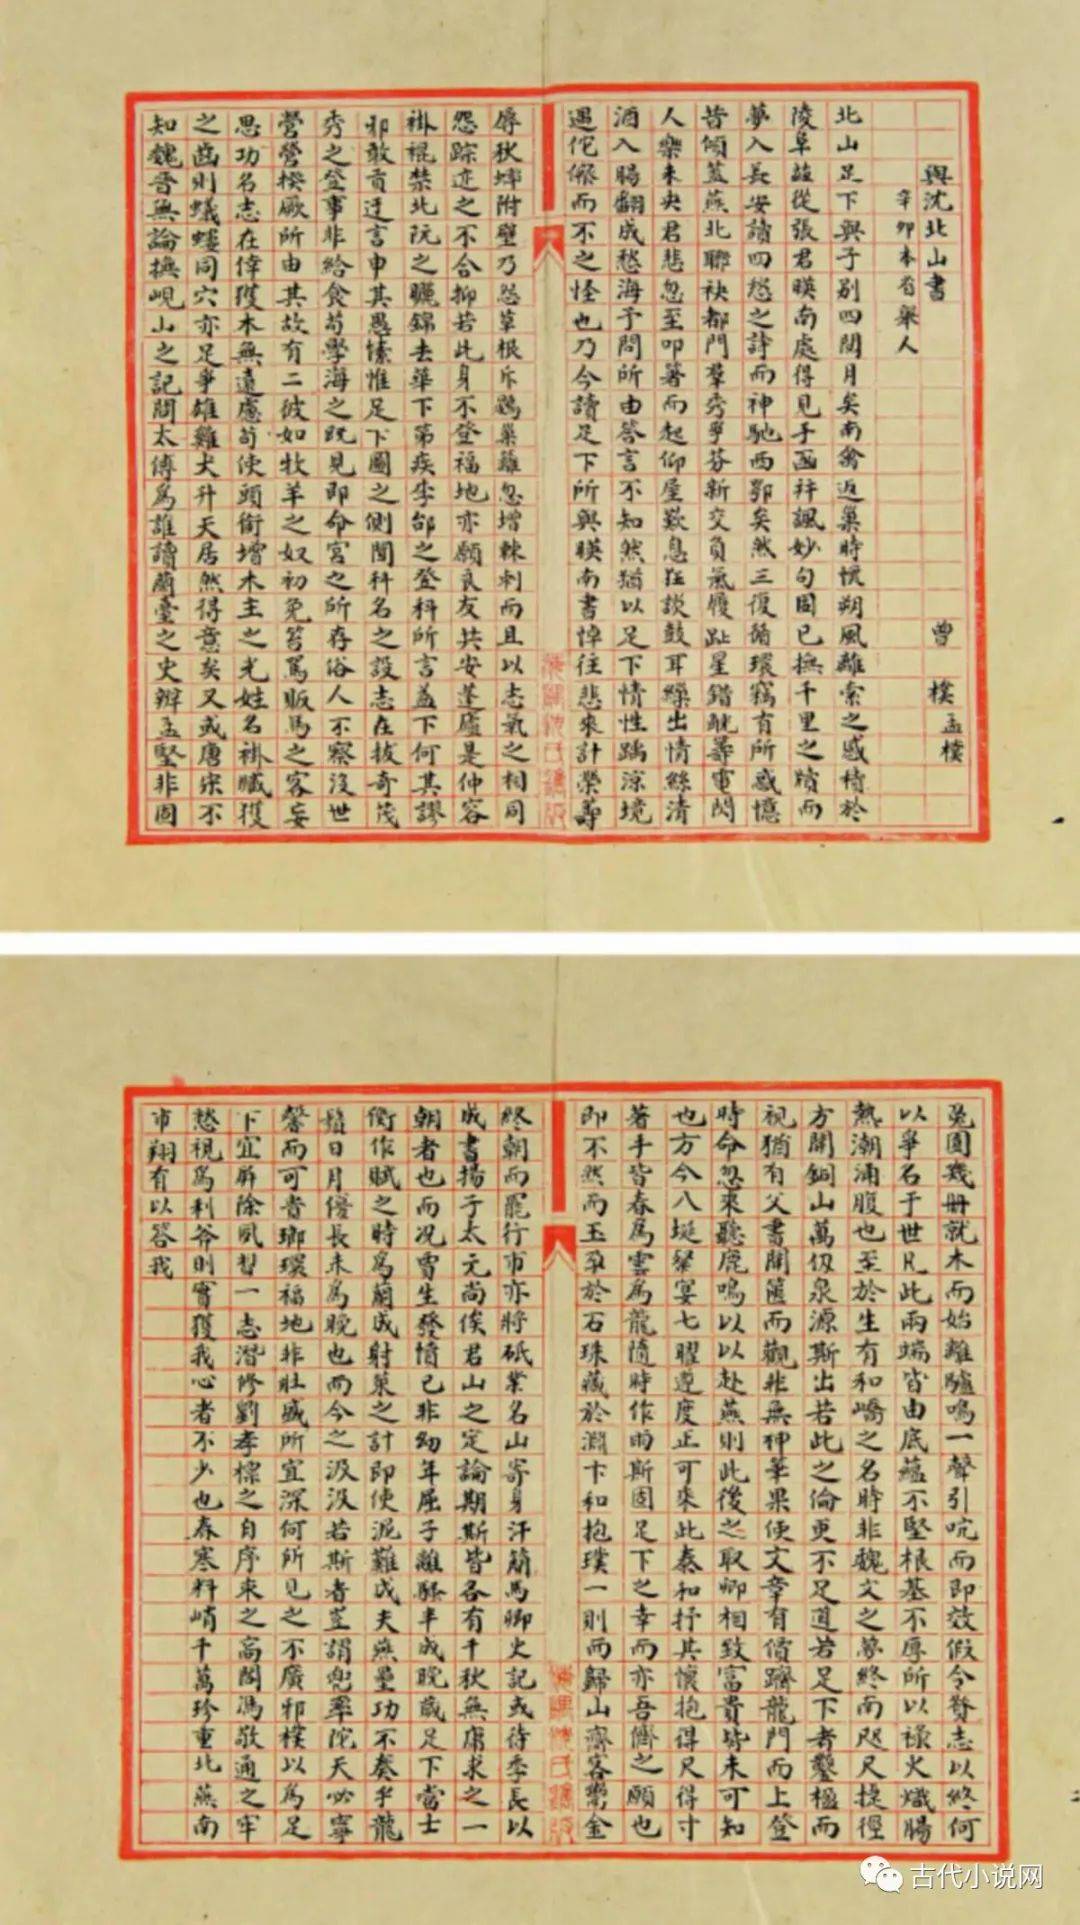 與沈北山書
辛卯本省舉人　曾樸孟樸
北山足下與子別四閱月矣南禽返巢時懷朔風離索之感積於
陵阜茲從張君暎南處得見手函并諷妙句固已撫千里之牘而
夢入長安讀四愁之詩而神馳西鄂矣然三復循環竊有所感憶
昔傾蓋燕北聯袂都門羣秀爭芬新交負氣履趾星錯觥籌電閃
人樂未央君悲忽至叩箸而起仰屋歎息狂談鼓耳繰出情絲清
酒入腸翻成愁海予問所由答言不知然猶以足下情性踽涼境
遇侘傺而不之怪也乃今讀足下所與暎南書悼往悲來計榮壽
辱秋蟀附壁乃怨草根斥鷃巢離忽增棘刺而且以志氣之相同
怨踪迹之不合抑若此身不登福地亦願良友共安蓬廬是仲容
褂裩禁北阮之曬錦去華下第疾李郃之登科所言益下何其謬
邪敢貢迂言申其愚愫惟足下圖之側聞科名之設志在拔奇茂
秀之登事非給食苟學海之既見即命宮之所存俗人不察沒世
營營揆厥所由其故有二彼如牧羊之奴初免笞罵販馬之客妄
思功名志在倖獲本無遠慮苟使頭銜增木主之光姓名褂臧獲
之齒則蟻螻同穴亦足爭雄雞犬升天居然得意矣又或唐宋不
知魏晉無論撫峴山之記問太傅爲誰讀蘭臺之史辨孟堅非固
兔園幾冊就木而始離驢鳴一聲引吭而即效假令賫志以終何
以爭名于世凡此兩端皆由底蘊不堅根基不厚所以祿火熾腸
熱潮涌腹也至於生有和嶠之名時非魏文之夢終南咫尺捷徑
方開銅山萬仭泉源斯出若此之倫更不足道若足下者鑿楹而
視猶有父書開篋而觀非無神筆果使文章有價躋龍門而上登
時命忽來聽鹿鳴以以赴燕則此後之取卿相致富貴皆未可知
也方今八埏擊宴七曜遵度正可來此泰和抒其懷抱得尺得寸
著手皆春爲雲爲龍隨時作雨斯固足下之幸而亦吾儕之願也
即不然而玉孕於石珠藏於淵卞和抱璞一則而歸山齋客鬻金
終朝而罷行市亦將砥業名山寄身汗簡馬卿史記或待季長以
成書揚子太元尚俟君山之定論期斯皆各有千秋無庸求之一
朝者也而况賈生發憤已非幼年屈子離騷半成晚歲足下當士
衡作賦之時爲蘭成射策之計即使泥難成夫燕壘功不奏乎龍
鬚日月優長未爲晚也而今之汲汲若斯者豈謂兜率陀天必寧
馨而可貴瑯環福地非壯盛所宜深何所見之不廣邪樸以爲足
下宜屏除夙習一志潛修劉孝標之自序束之高閣馮敬通之牢
愁視爲利斧則實獲我心者不少也春寒料峭千萬珍重北燕南
市翔有以答我
古代小说网